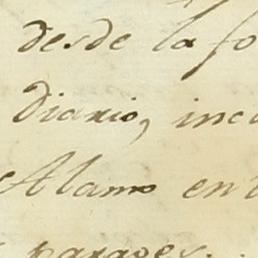 desde la fo
diario, inc
Alamo en
parages.